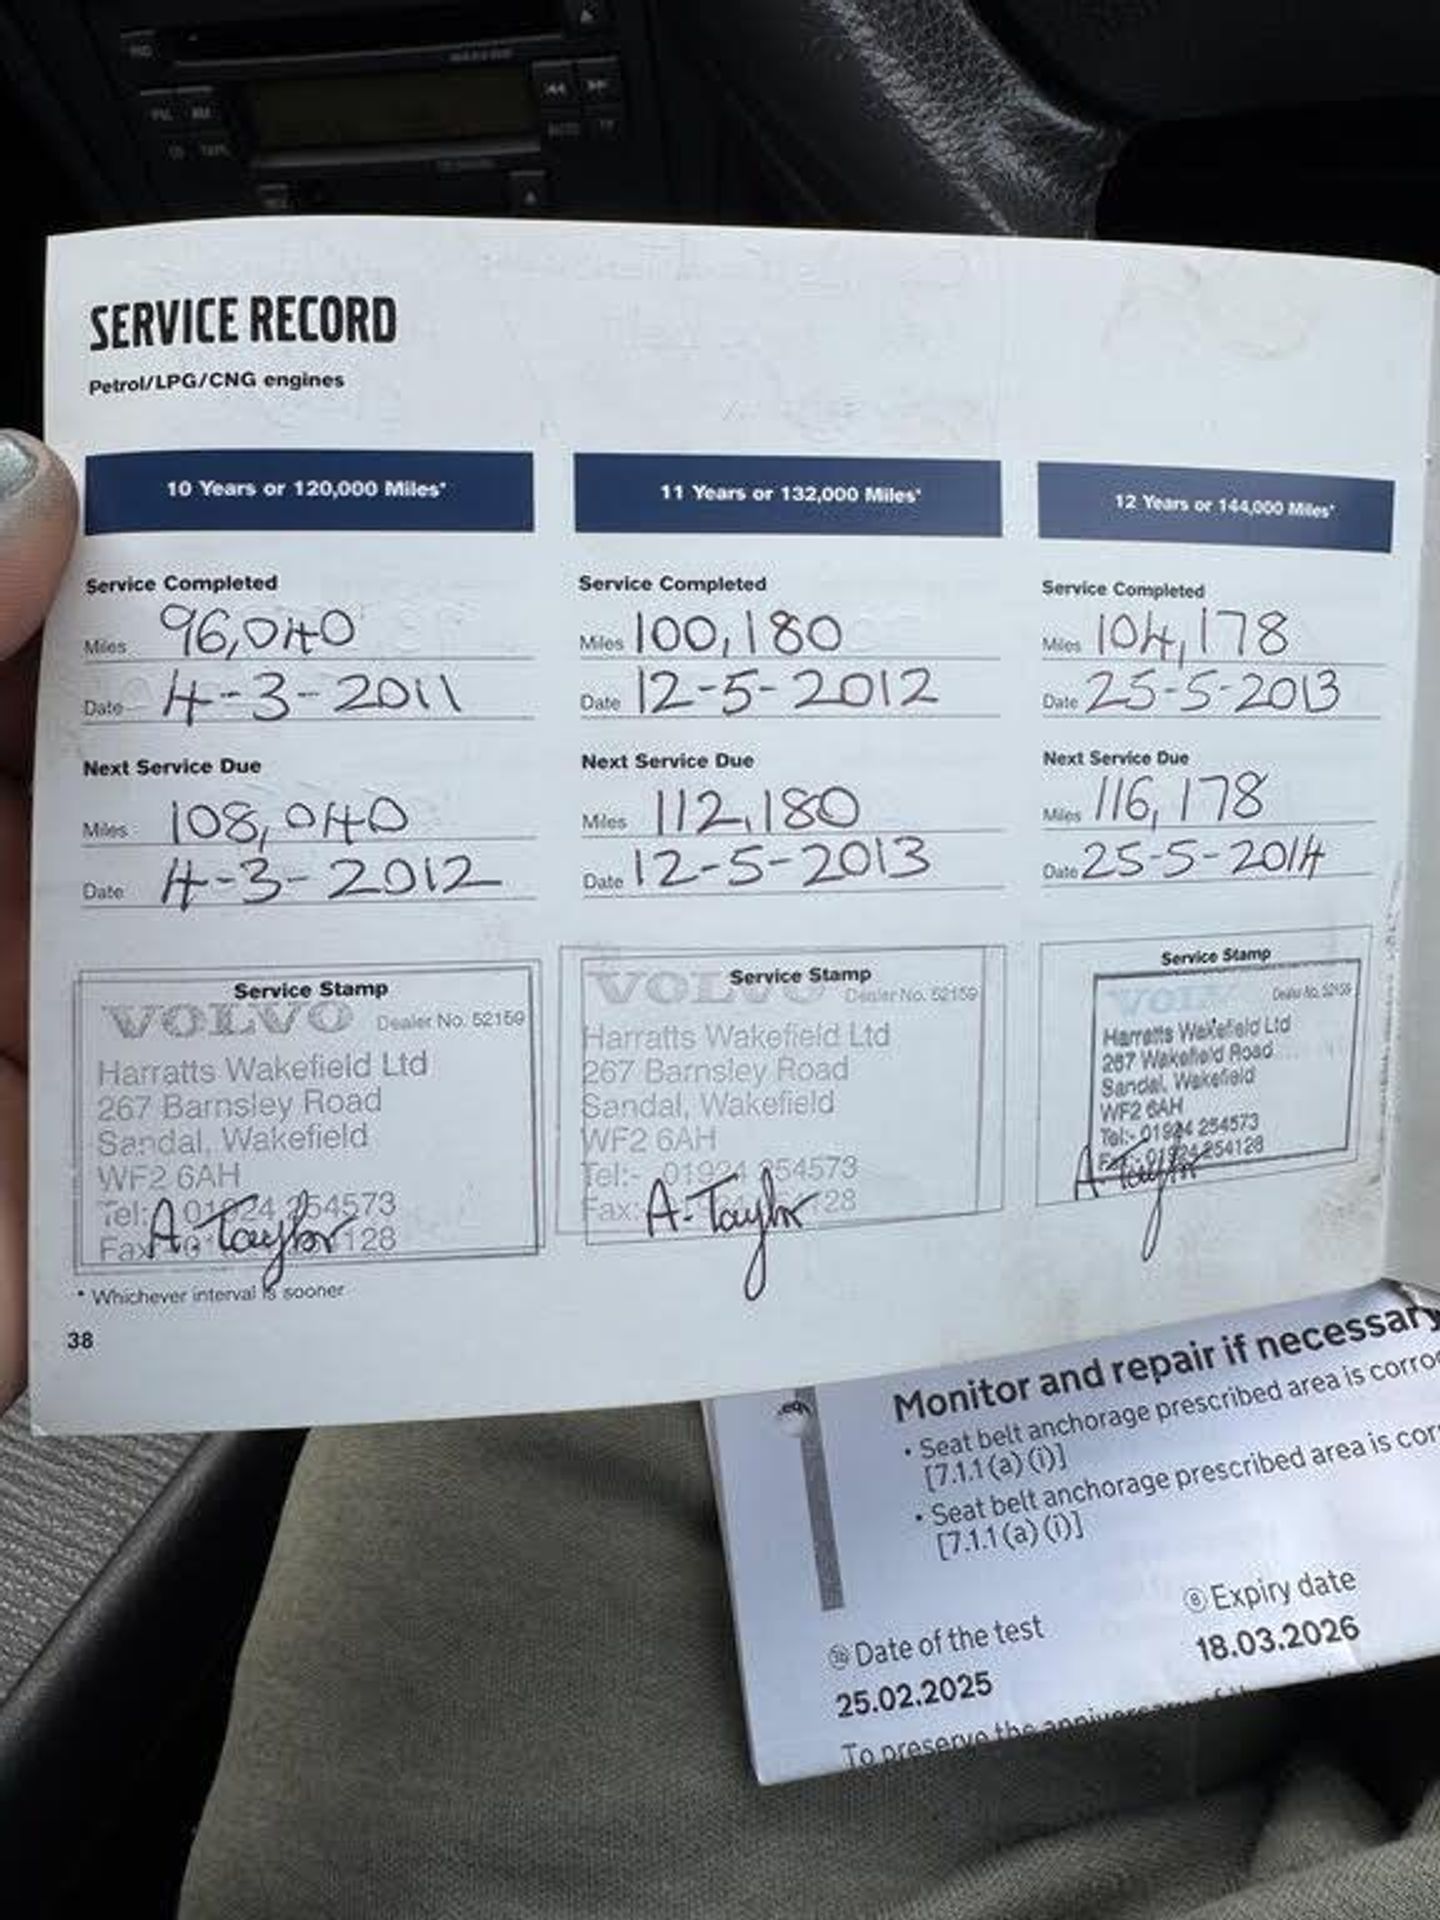 SERVICE RECORD
Petrol/LPG/CNG engines
10 Years or 120,000 Miles*
Service Completed
Miles 96,040
Date 4-3-2011
Next Service Due
Miles 108,040
Date 4-3-2012
Service Stamp
VOLVO Dealer No. 52159
Harratts Wakefield Ltd
267 Barnsley Road
Sandal, Wakefield
WF2 6AH
Tel: 01924 254573
Fax 128
A. Taylor
11 Years or 132,000 Miles*
Service Completed
Miles 100,180
Date 12-5-2012
Next Service Due
Miles 112,180
Date 12-5-2013
Service Stamp
VOLVO Dealer No. 52159
Harratts Wakefield Ltd
267 Barnsley Road
Sandal, Wakefield
WF2 6AH
Tel:- 01924 254573
Fax: 128
A. Taylor
12 Years or 144,000 Miles*
Service Completed
Miles 104,178
Date 25-5-2013
Next Service Due
Miles 116,178
Date 25-5-2014
Service Stamp
VOLVO Dealer No. 52159
Harratts Wakefield Ltd
267 Wakefield Road
Sandal, Wakefield
WF2 6AH
Tel:- 01924 254573
Fax:- 01924 254128
A. Taylor
* Whichever interval is sooner
38
Monitor and repair if necessary
• Seat belt anchorage prescribed area is corro
[7.1.1 (a) (i)]
• Seat belt anchorage prescribed area is cor
[7.1.1 (a) (i)]
Date of the test
25.02.2025
8 Expiry date
18.03.2026
To preserve the anniversary of the